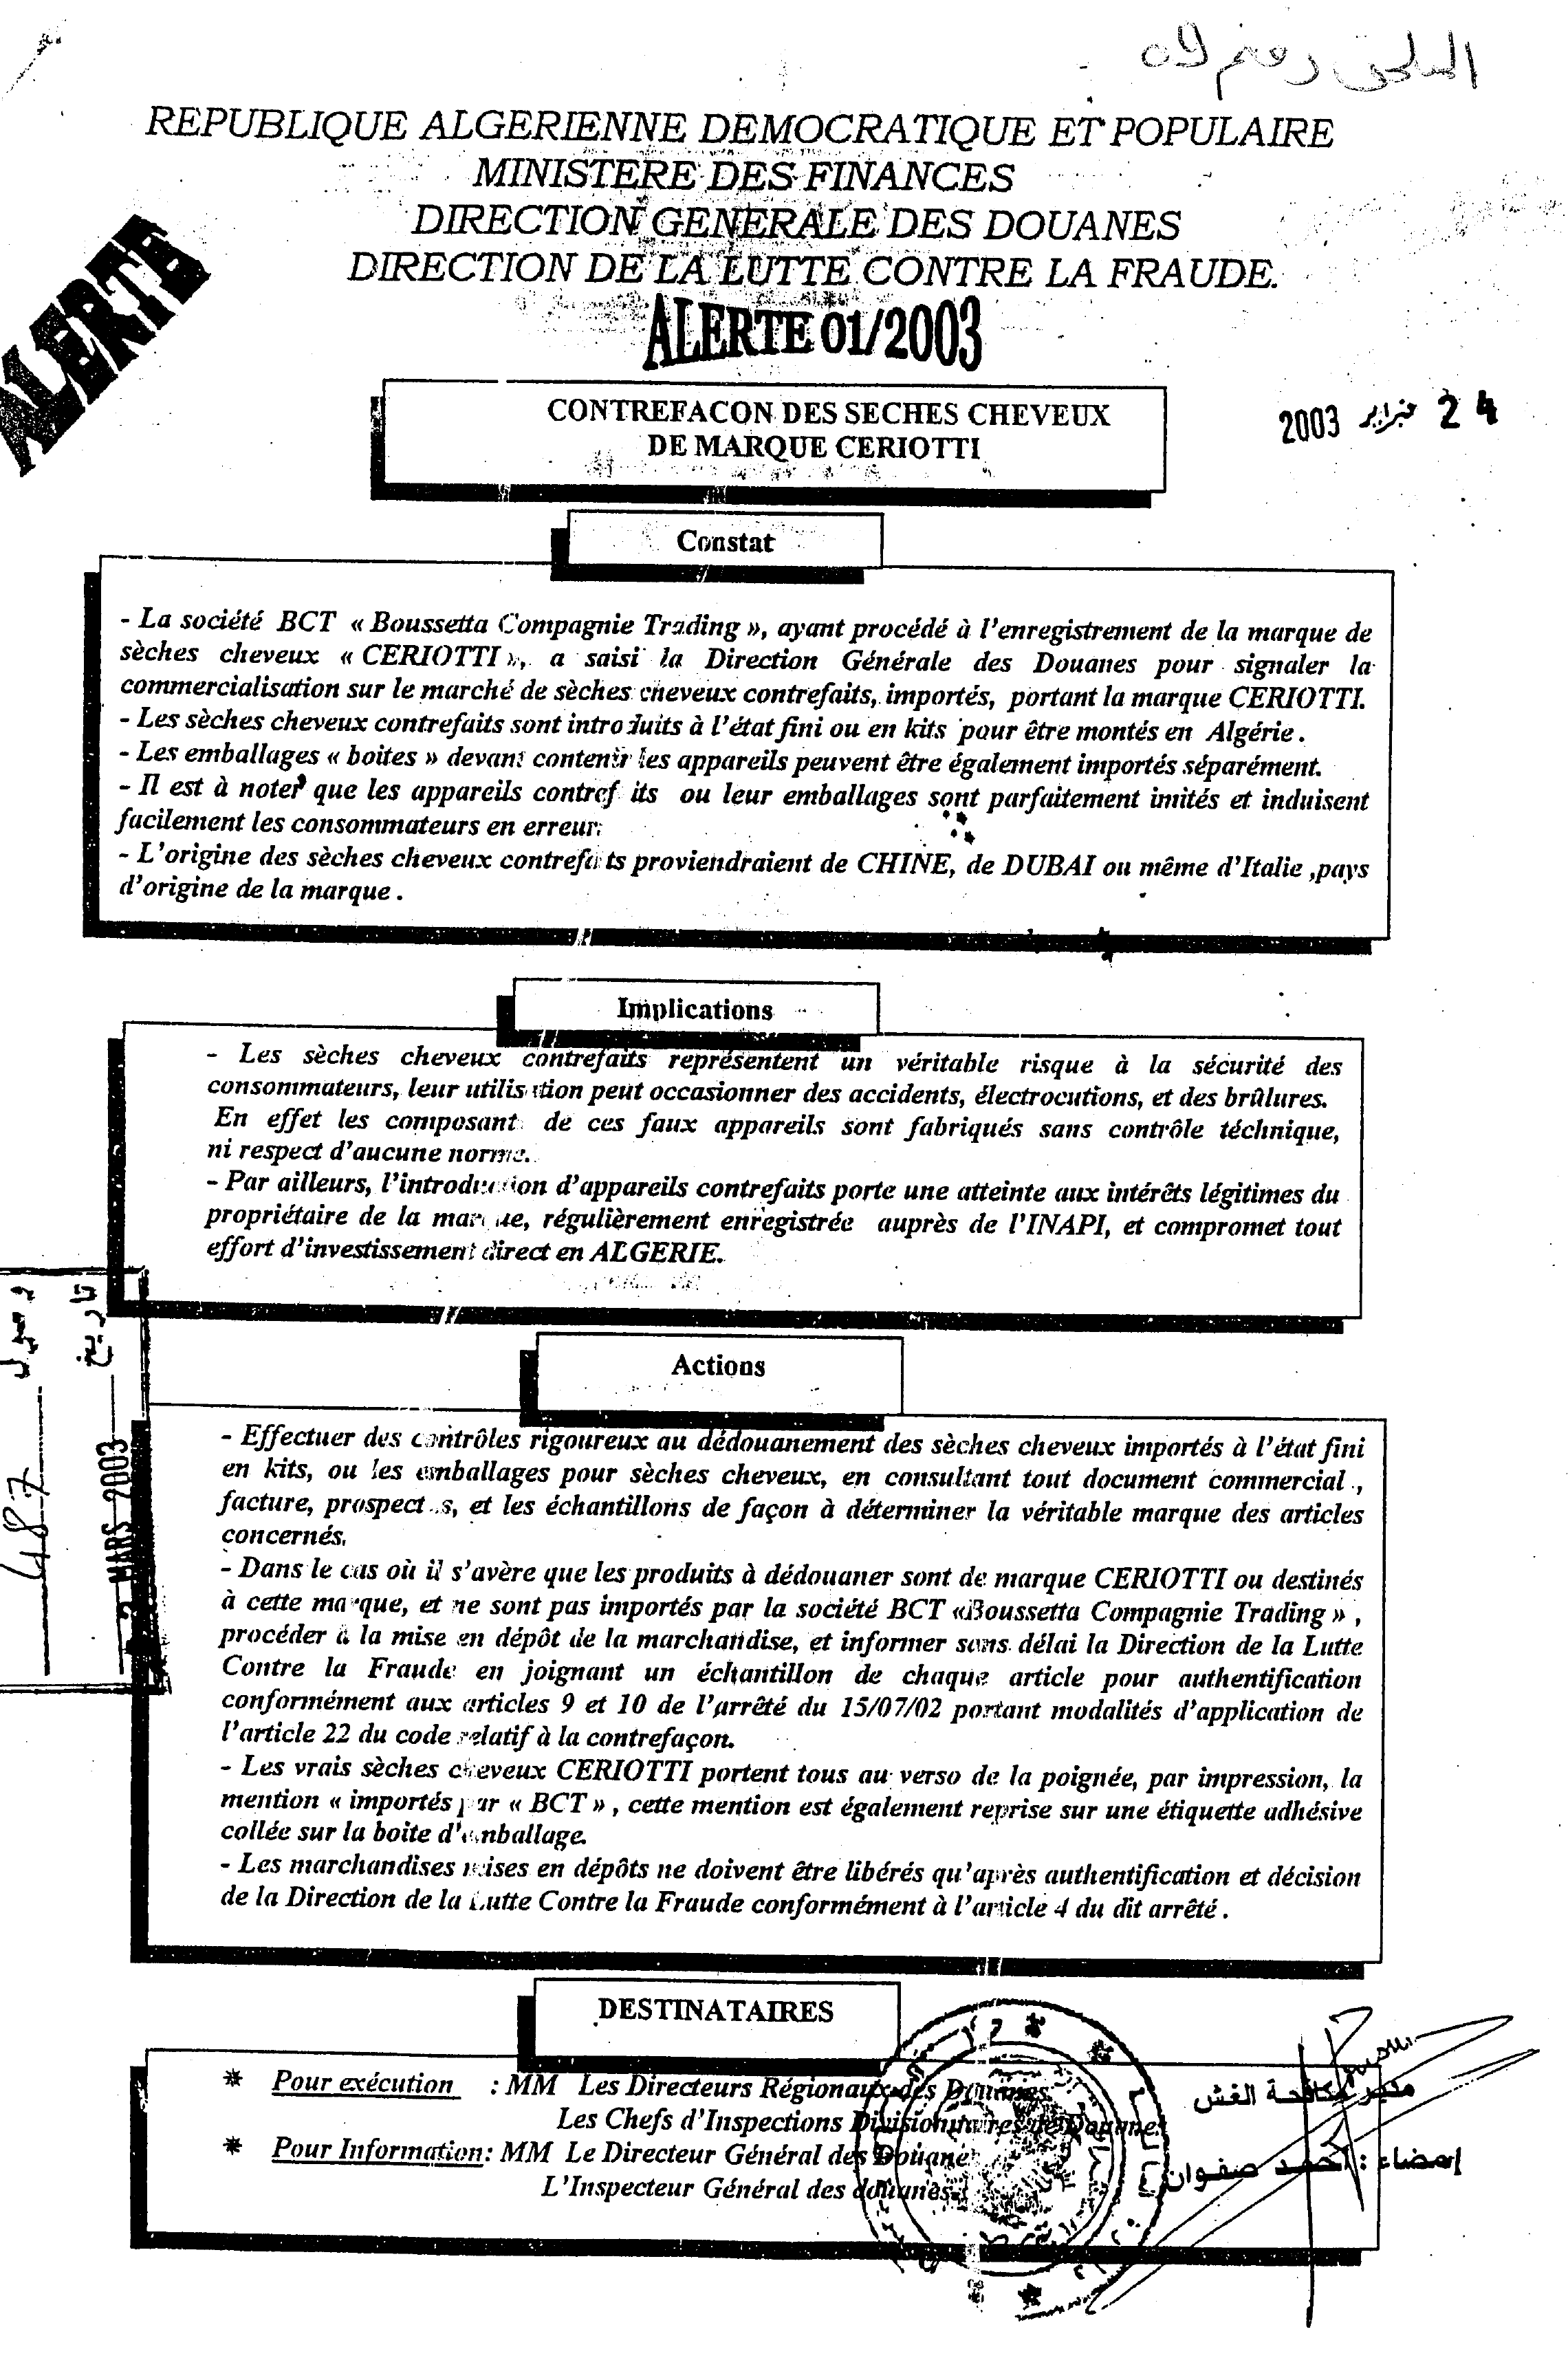 الملحق رقم 09
REPUBLIQUE ALGERIENNE DEMOCRATIQUE ET POPULAIRE
MINISTERE DES FINANCES
DIRECTION GENERALE DES DOUANES
DIRECTION DE LA LUTTE CONTRE LA FRAUDE.
ALERTE
ALERTE 01/2003
24 فبراير 2003
CONTREFACON DES SECHES CHEVEUX
DE MARQUE CERIOTTI
Constat
- La société BCT « Boussetta Compagnie Trading », ayant procédé à l'enregistrement de la marque de
sèches cheveux « CERIOTTI », a saisi la Direction Générale des Douanes pour signaler la
commercialisation sur le marché de sèches cheveux contrefaits, importés, portant la marque CERIOTTI.
- Les sèches cheveux contrefaits sont introduits à l'état fini ou en kits pour être montés en Algérie .
- Les emballages « boites » devant contenir les appareils peuvent être également importés séparément.
- Il est à noter que les appareils contrefaits ou leur emballages sont parfaitement imités et induisent
facilement les consommateurs en erreur.
- L'origine des sèches cheveux contrefaits proviendraient de CHINE, de DUBAI ou même d'Italie ,pays
d'origine de la marque .
Implications
- Les sèches cheveux contrefaits représentent un véritable risque à la sécurité des
consommateurs, leur utilisation peut occasionner des accidents, électrocutions, et des brûlures.
En effet les composant de ces faux appareils sont fabriqués sans contrôle téchnique,
ni respect d'aucune norme.
- Par ailleurs, l'introduction d'appareils contrefaits porte une atteinte aux intérêts légitimes du
propriétaire de la marque, régulièrement enregistrée auprès de l'INAPI, et compromet tout
effort d'investissement direct en ALGERIE.
وصول
تاريخ
487
MARS 2003
Actions
- Effectuer des contrôles rigoureux au dédouanement des sèches cheveux importés à l'état fini
en kits, ou les emballages pour sèches cheveux, en consultant tout document commercial ,
facture, prospectus, et les échantillons de façon à déterminer la véritable marque des articles
concernés.
- Dans le cas où il s'avère que les produits à dédouaner sont de marque CERIOTTI ou destinés
à cette marque, et ne sont pas importés par la société BCT «Boussetta Compagnie Trading» ,
procéder à la mise en dépôt de la marchandise, et informer sans délai la Direction de la Lutte
Contre la Fraude en joignant un échantillon de chaque article pour authentification
conformément aux articles 9 et 10 de l'arrêté du 15/07/02 portant modalités d'application de
l'article 22 du code relatif à la contrefaçon.
- Les vrais sèches cheveux CERIOTTI portent tous au verso de la poignée, par impression, la
mention « importés par « BCT » , cette mention est également reprise sur une étiquette adhésive
collée sur la boite d'emballage.
- Les marchandises mises en dépôts ne doivent être libérés qu'après authentification et décision
de la Direction de la Lutte Contre la Fraude conformément à l'article 4 du dit arrêté .
DESTINATAIRES
* Pour exécution : MM Les Directeurs Régionaux des Douanes
Les Chefs d'Inspections Divisionnaires de Douanes
* Pour Information: MM Le Directeur Général des Douane
L'Inspecteur Général des douanes.
مدير مكافحة الغش
إمضاء : أحمد صفوان